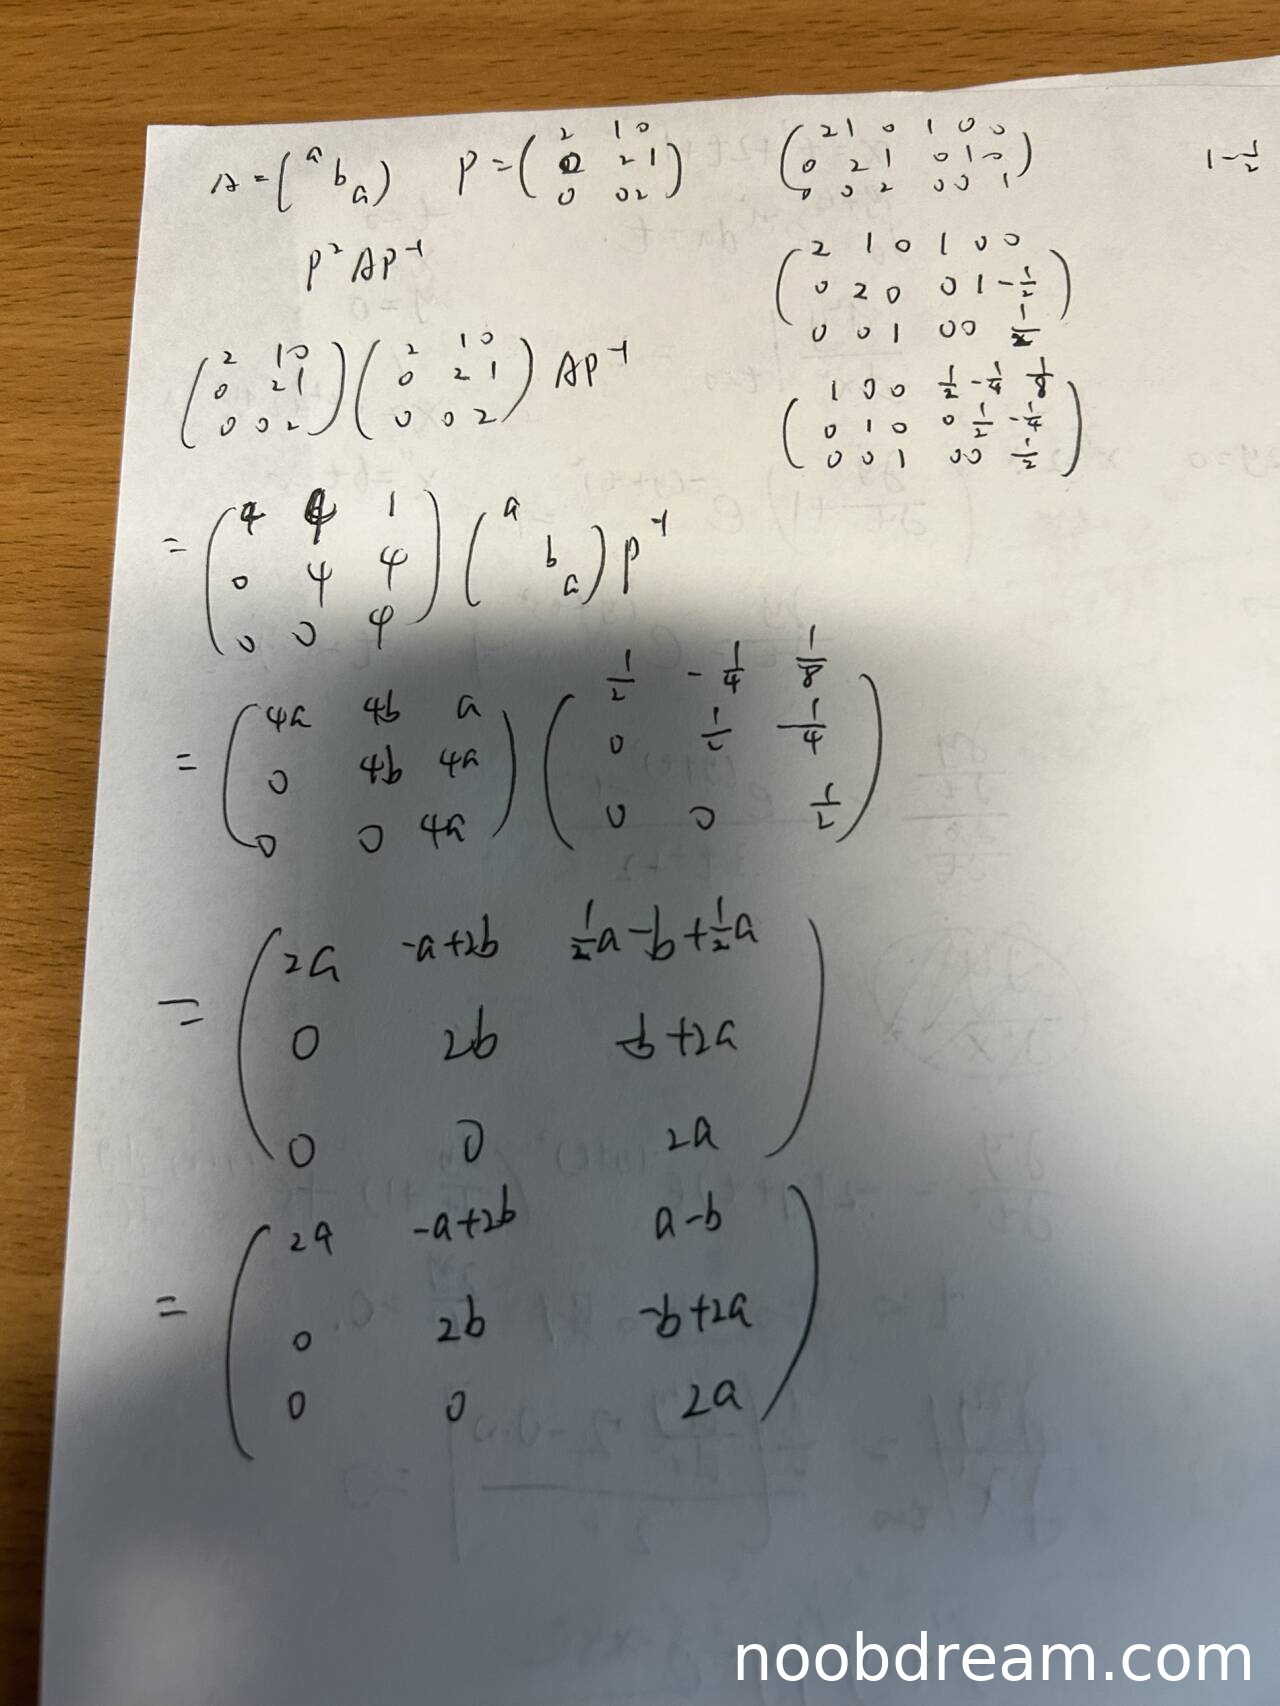 A = ( a b a )   P = ( 2 1 0   ( 2 1 0 1 0 0   1 - 1/2
0 2 1   0 2 1 0 1 0
0 0 2 )   0 0 2 0 0 1 )
P² A P⁻¹
( 2 1 0 1 0 0
0 2 0 0 1 -1/2
0 0 1 0 0 1/2 )
( 2 1 0   ( 2 1 0
0 2 1   0 2 1   AP⁻¹
0 0 2 )   0 0 2 )
( 1 0 0 1/2 -1/4 1/8
0 1 0 0 1/2 -1/4
0 0 1 0 0 1/2 )
= ( 4 4 1   ( a
0 4 4   b
0 0 4 )   a ) P⁻¹
= ( 4a 4b a   ( 1/2 -1/4 1/8
0 4b 4a   0 1/2 -1/4
0 0 4a )   0 0 1/2 )
= ( 2a -a+2b 1/2a-b+1/2a
0 2b -b+2a
0 0 2a )
= ( 2a -a+2b a-b
0 2b -b+2a
0 0 2a )
noobdream.com